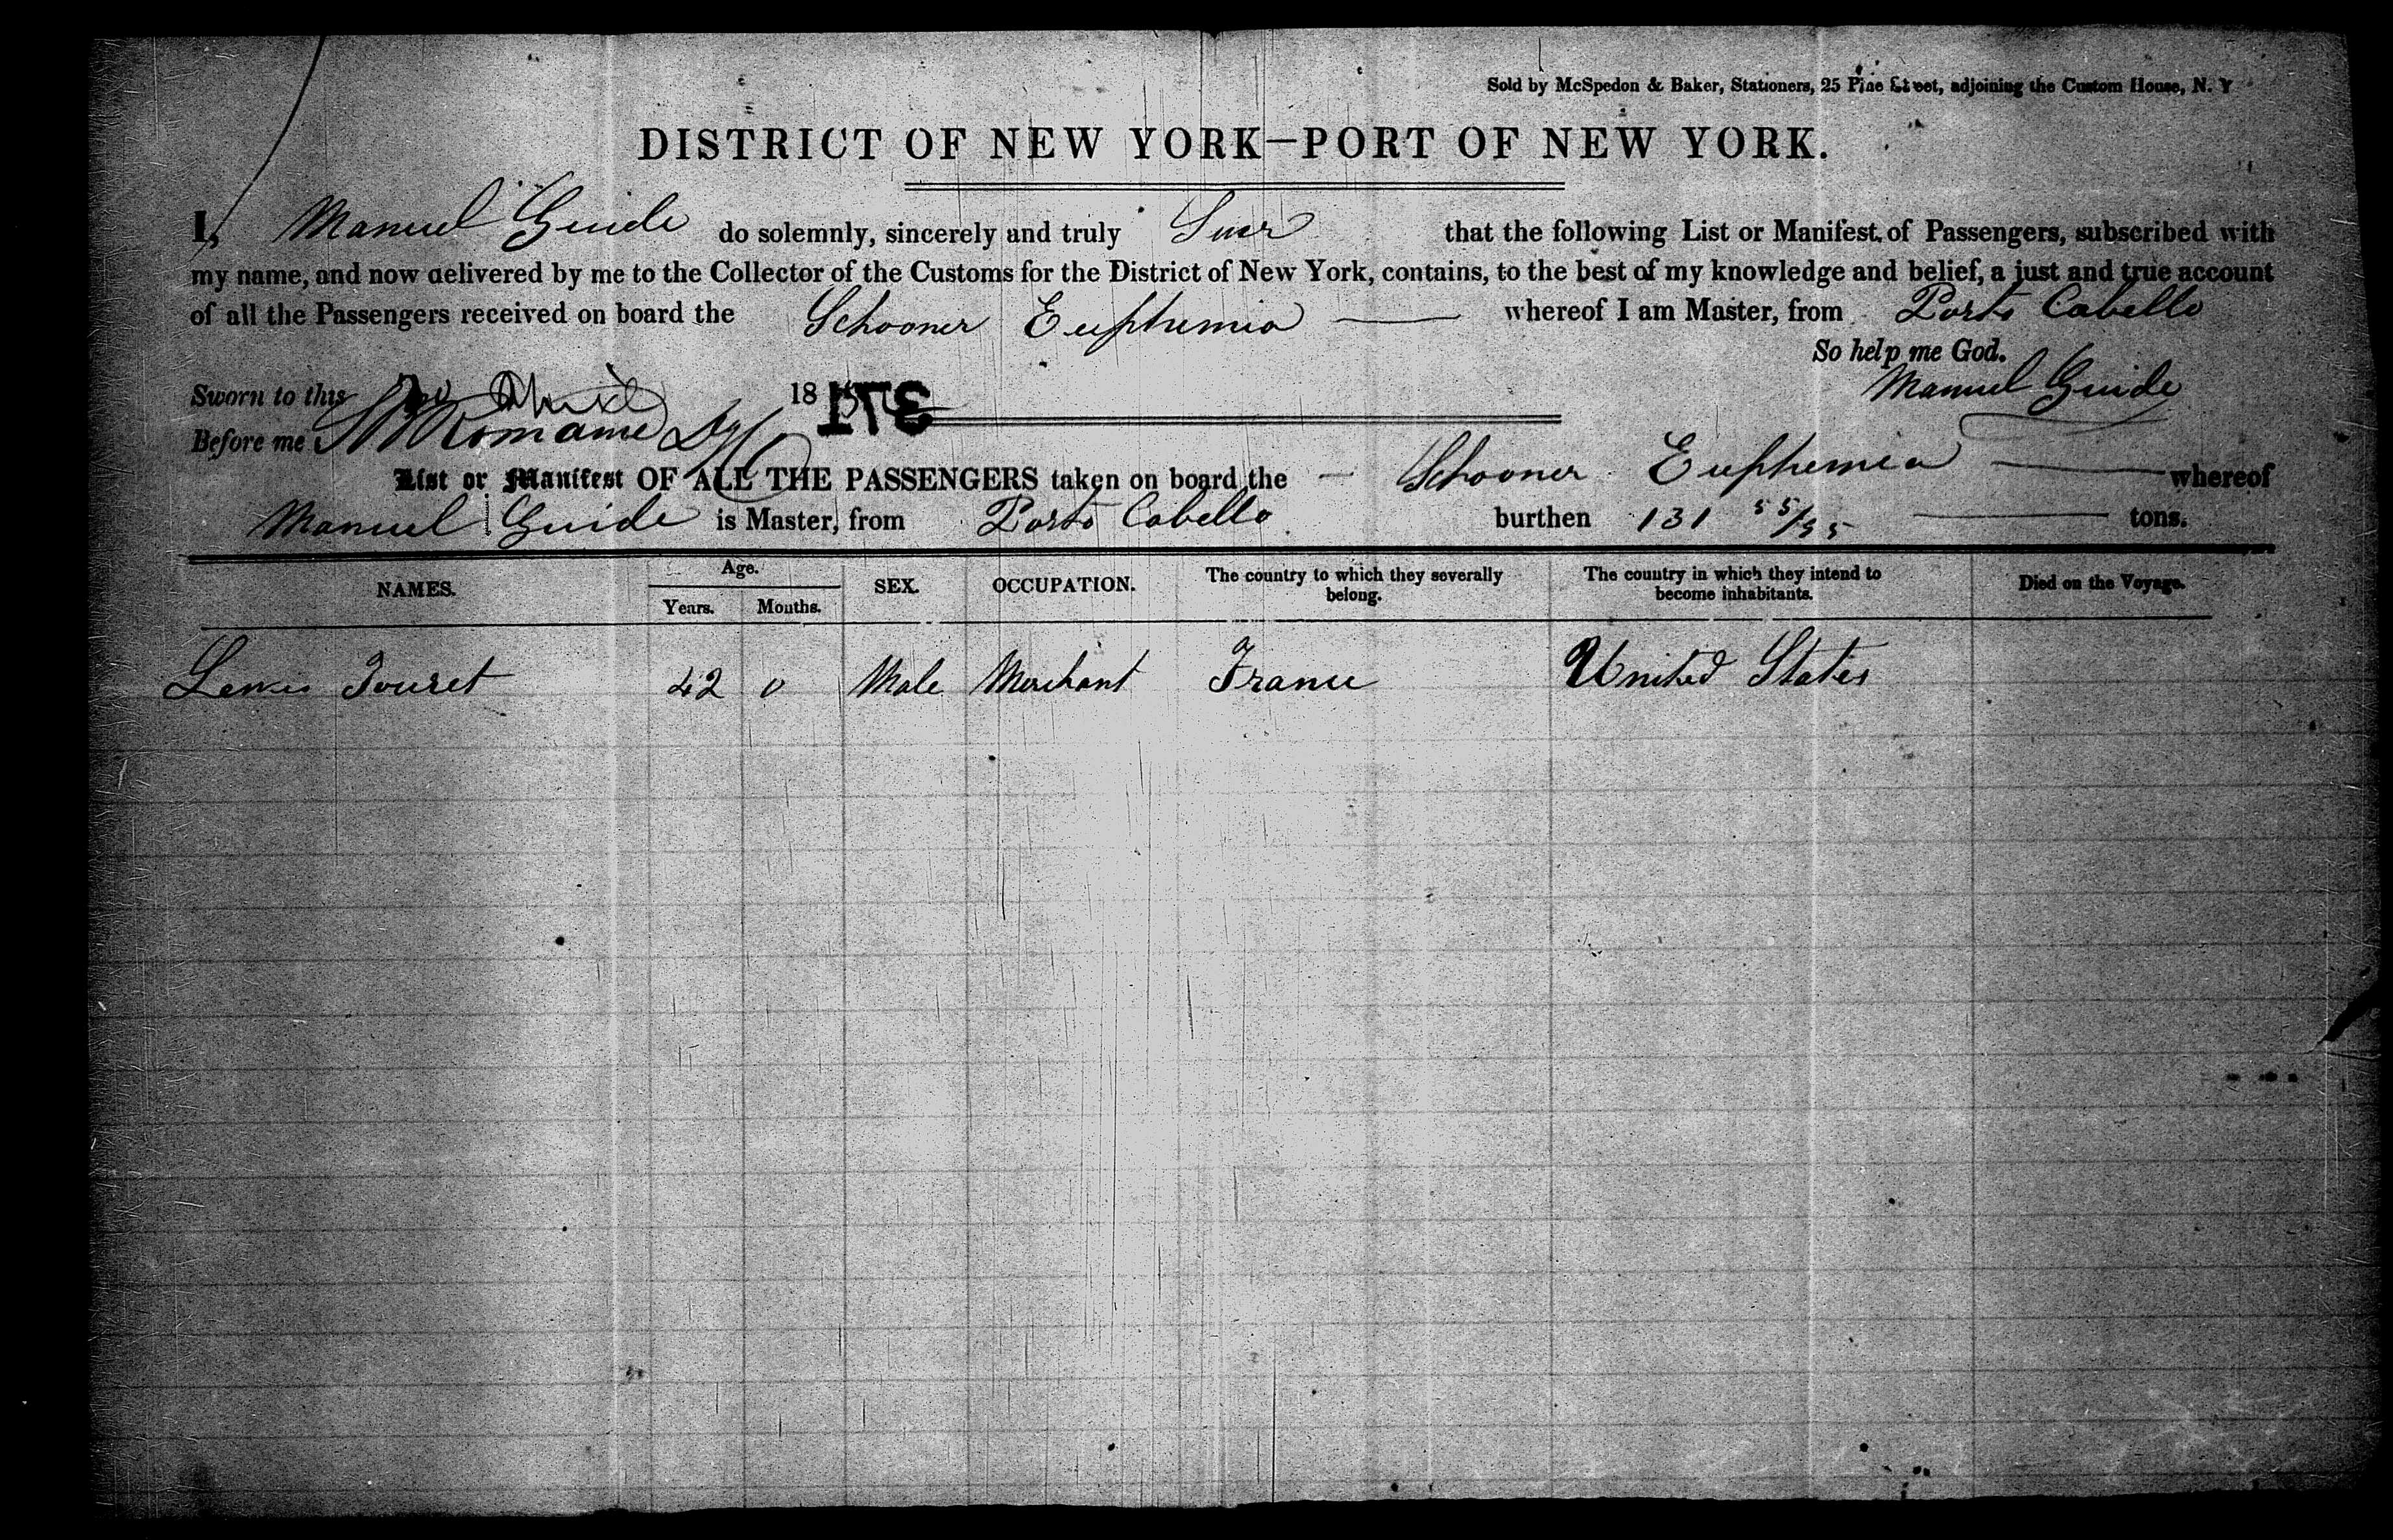 Sold by McSpedon & Baker, Stationers, 25 Pine Street, adjoining the Custom House, N. Y
DISTRICT OF NEW YORK—PORT OF NEW YORK.
I, Manuel Guide do solemnly, sincerely and truly Swear that the following List or Manifest of Passengers, subscribed with
my name, and now delivered by me to the Collector of the Customs for the District of New York, contains, to the best of my knowledge and belief, a just and true account
of all the Passengers received on board the Schooner Euphemia whereof I am Master, from Porto Cabello
So help me God.
Manuel Guide
Sworn to this April 18
Before me Romaine
List or Manifest OF ALL THE PASSENGERS taken on board the Schooner Euphemia whereof
Manuel Guide is Master, from Porto Cabello burthen 131 55/95 tons.
NAMES. Age. Years. Months. SEX. OCCUPATION. The country to which they severally belong. The country in which they intend to become inhabitants. Died on the Voyage.
Lewis Touret 42 0 Male Merchant France United States